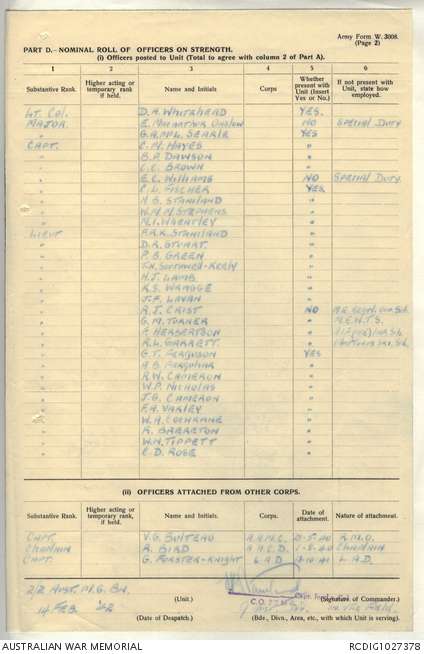 Army Form W. 3008.
(Page 2)
PART D.—NOMINAL ROLL OF OFFICERS ON STRENGTH.
(i) Officers posted to Unit (Total to agree with column 2 of Part A).
1 2 3 4 5 6
Substantive Rank. Higher acting or temporary rank if held. Name and Initials. Corps Whether present with Unit (Insert Yes or No.) If not present with Unit, state how employed.
Lt. Col. D.A. WHITEHEAD YES.
MAJOR E. MACARTHUR ONSLOW NO SPECIAL DUTY
" SEARLE YES
CAPT. C. M. HAYES "
" B. P. DAWSON "
" C. C. BROWN "
" E. C. WILLIAMS NO SPECIAL DUTY.
" C. L. FISCHER YES.
" N. B. STANILAND "
" W. M. M. STEPHENS "
" N. I. WHEATLEY "
LIEUT F.R.K. STANILAND "
" D. R. STUART "
" P. B. GREEN "
" "
" H. J. LAMB "
" R. S. WRAGGE "
" J. F. LAVAN "
" R. J. CRIST NO
" G. M. TURNER " M.E.W.T.S.
" HERBERTSON "
" R. L. GARRETT "
" G. T. FERGUSON YES
" A. B. FERGUSON "
" R. W. CAMERON "
" W. P. NICHOLAS "
" J. G. CAMERON "
" F. A. VARLEY "
" W. A. COCHRANE "
" R. BRERETON "
" W. H. TIPPETT "
" C. D. ROSE "
(ii) OFFICERS ATTACHED FROM OTHER CORPS.
Substantive Rank. Higher acting or temporary rank if held. Name and Initials. Corps. Date of attachment. Nature of attachment.
CAPT. V. G. BULTEAU A.A.M.C. R.M.O.
CHAPLAIN A. BIRD A.A.C.D. 1-5-40 CHAPLAIN
CAPT. G. FORSTER-KNIGHT L.A.D. L.A.D.
2/2 AUST. M.G. BN. (Unit.) (Signature of Commander.)
14 FEB '42 (Date of Despatch.) In the Field. (Bde., Divn., Area, etc., with which Unit is serving).
AUSTRALIAN WAR MEMORIAL RCDIG1027378